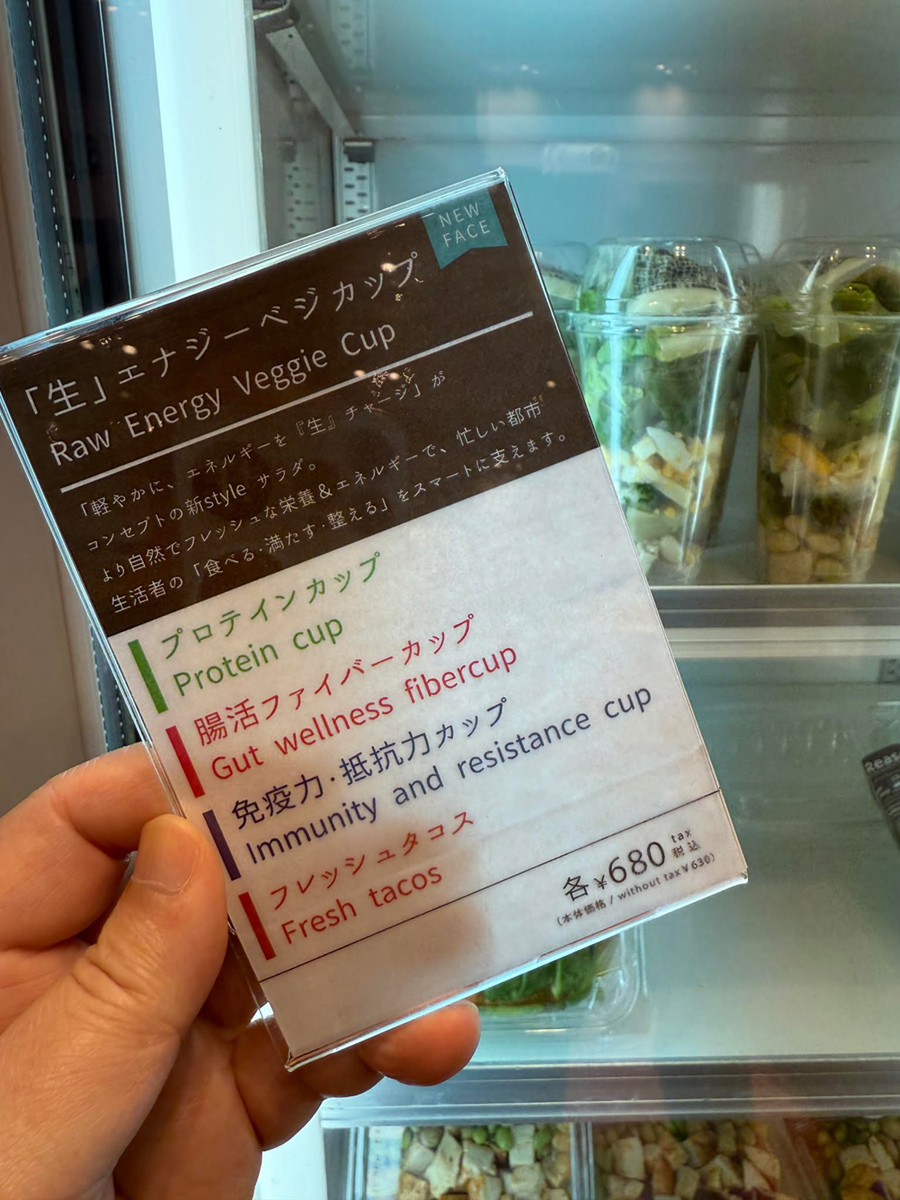 NEW
FACE
「生」エナジーベジカップ
Raw Energy Veggie Cup
「軽やかに、エネルギーを『生』チャージ」が
コンセプトの新style サラダ。
より自然でフレッシュな栄養&エネルギーで、忙しい都市
生活者の「食べる·満たす·整える」をスマートに支えます。
プロテインカップ
Protein cup
腸活ファイバーカップ
Gut wellness fibercup
免疫力·抵抗力カップ
Immunity and resistance cup
フレッシュタコス
Fresh tacos
各 ¥680 tax 税込
(本体価格 / without tax ¥ 630)